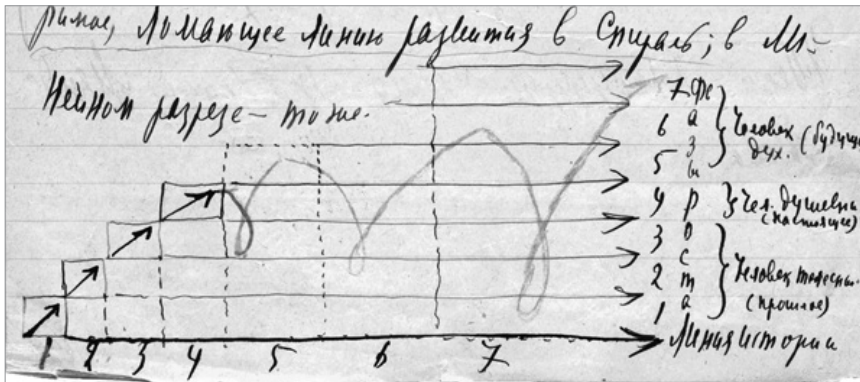 римое, ломающее линию развития в спираль; в ли-
нейном разрезе – тоже.
7
6 а
з
5 ы
Человек
дух. (будущ
4 р
Чел. душевн
(настоящее)
3 о
с
2 т
1 а
Человек телесны
(прошлое)
Линия истории
1 2 3 4 5 6 7